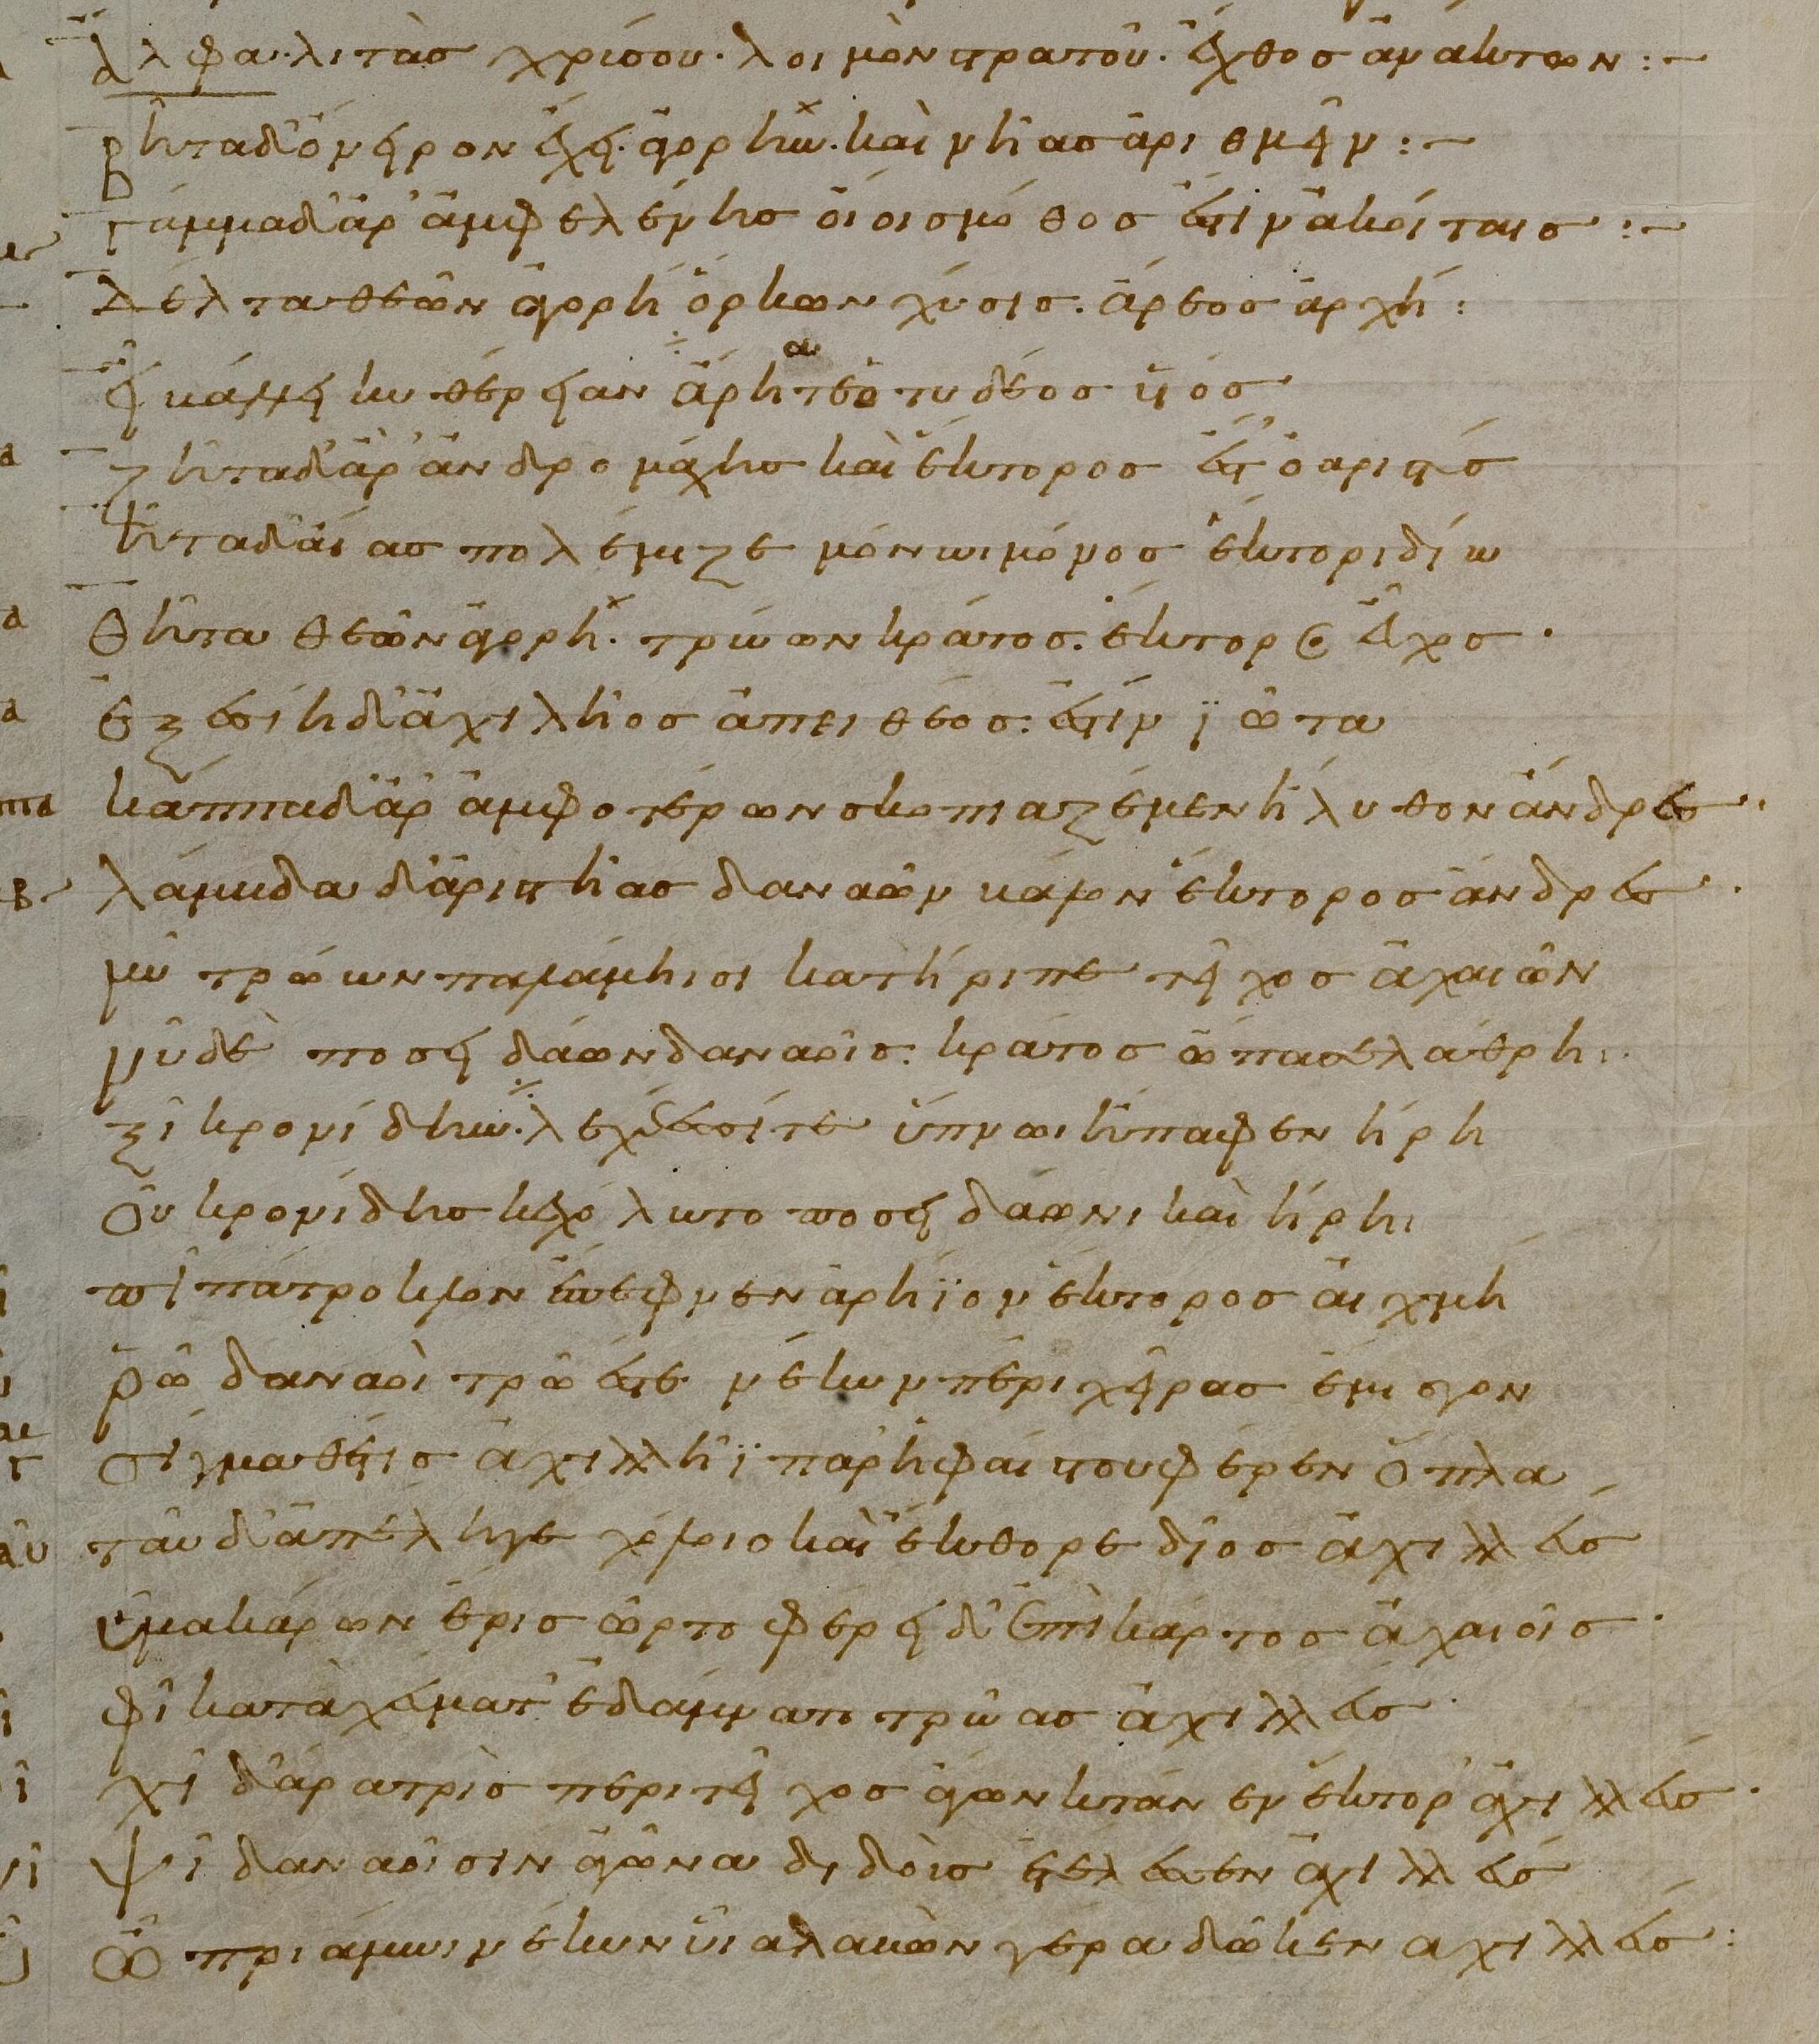 Ἄλφα· λιτὰσ χρύσου· λοιμὸν στρατοῦ· ἔχθοσ ἀνάκτων:~
Βῆτα δ' ὄνειρον ἔχει· ἀγορὴν· καὶ νῆασ ἀριθμεῖν:~
Γάμμα δ' ἄρ' ἀμφ' ἑλένησ οἴοισ μόθοσ ἐστὶν ἀκοίταισ:~
Δέλτα θεῶν ἀγορὴ ὅρκων χύσισ· ἄρεοσ ἀρχή:
Εἶ κάμνει κυθέρειαν ἄρητά τε τυδέοσ υἱόσ
Ζῆτα δ' ἄρ' ἀνδρομάχησ καὶ ἕκτοροσ ἔστ' ὀαριστύσ
ῆτα δ' αἴασ πολέμιζε μόνωι μόνοσ ἕκτορι δίω
Θῆτα θεῶν ἀγορὴ· τρώων κράτοσ· ἕκτοροσ εὖχοσ·
Ἐξεσίη δ' ἀχιλῆοσ ἀπειθέοσ· ἐστὶν ϊῶτα
κάππα δ' ἄρ' ἀμφοτέρων σκοπιαζέμεν ἤλυθον ἄνδρεσ·
λάμβδα δ' ἀριστῆασ δαναῶν κάμον ἕκτοροσ ἄνδρεσ·
μῦ τρώων παλάμηισι κατήριπε τεῖχοσ ἀχαιῶν
νῦ δὲ ποσειδάων δαναοῖσ· κράτοσ ὤπασε λάθρηι·
ξῖ κρονίδην· λεχέεσσί τε ὕπνωι ἤπαφεν ἥρη
Οὖ κρονίδησ κεχόλωτο ποσειδάωνι καὶ ἥρηι
πῖ πάτροκλον ἔπεφνεν ἀρήϊον ἕκτοροσ αἰχμή
ῥῶ δαναοὶ τρῶέστε νέκυν πέρι χεῖρασ ἔμισγον
σίγμα θέτισ ἀχιλλῆϊ παρ' ἡφαίστου φέρεν ὅπλα
ταῦ δ' ἀπέληγε χόλοιο καὶ ἔκθορε δῖοσ ἀχιλλεύσ
ὖ μακάρων ἔρισ ὦρτο φέρει δ' ἐπὶ κάρτοσ ἀχαιοῖσ·
φῖ κατὰ χεύματ' ἐδάμνατο τρῶασ ἀχιλλεύσ·
χῖ δ' ἄρα τρὶσ περὶ τεῖχοσ ἄγων κτάνεν ἕκτορ' ἀχιλλεύσ·
Ψῖ δαναοῖσιν ἀγῶνα διδοὺσ ἐτέλεσσεν ἀχιλλεύσ
Ὦ πριάμωι νέκυν υἷα λαβὼν γέρα δῶκεν ἀχιλλεύσ: